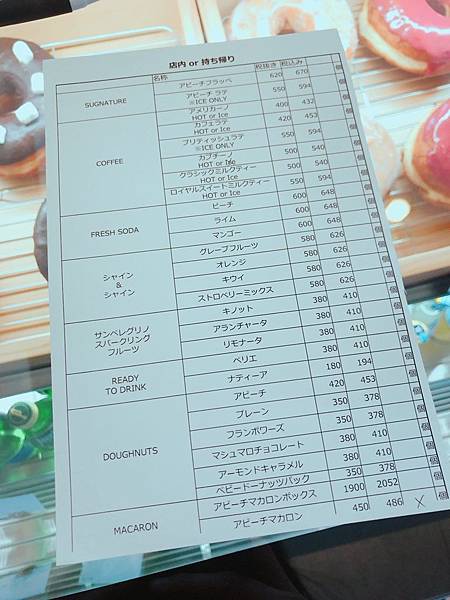 店内 or 持ち帰り
名称 税抜き 税込み
SUGNATURE
アピーチフラッペ 620 670 個
アピーチ ラテ 550 594 個
※ICE ONLY
COFFEE
アメリカーノ 400 432 個
HOT or Ice
カフェラテ 420 453 個
HOT or Ice
ブリティッシュラテ 550 594 個
※ICE ONLY
カプチーノ 500 540 個
HOT or Ice
クラシックミルクティー 500 540 個
HOT or Ice
ロイヤルスイートミルクティー 550 594 個
HOT or Ice
FRESH SODA
ピーチ 600 648 個
ライム 600 648 個
マンゴー 600 648 個
シャイン
&
シャイン
グレープフルーツ 580 626 個
オレンジ 580 626 個
キウイ 580 626 個
ストロベリーミックス 580 626 個
サンペレグリノ
スパークリング
フルーツ
キノット 380 410 個
アランチャータ 380 410 個
リモナータ 380 410 個
READY
TO DRINK
ペリエ 380 410 個
ナティーア 180 194 個
DOUGHNUTS
アピーチ 420 453 個
プレーン 350 378 個
フランボワーズ 350 378 個
マシュマロチョコレート 380 410 個
アーモンドキャラメル 380 410 個
ベビードーナッツパック 350 378 個
MACARON
アピーチマカロンボックス 1900 2052 個
アピーチマカロン 450 486 X 個